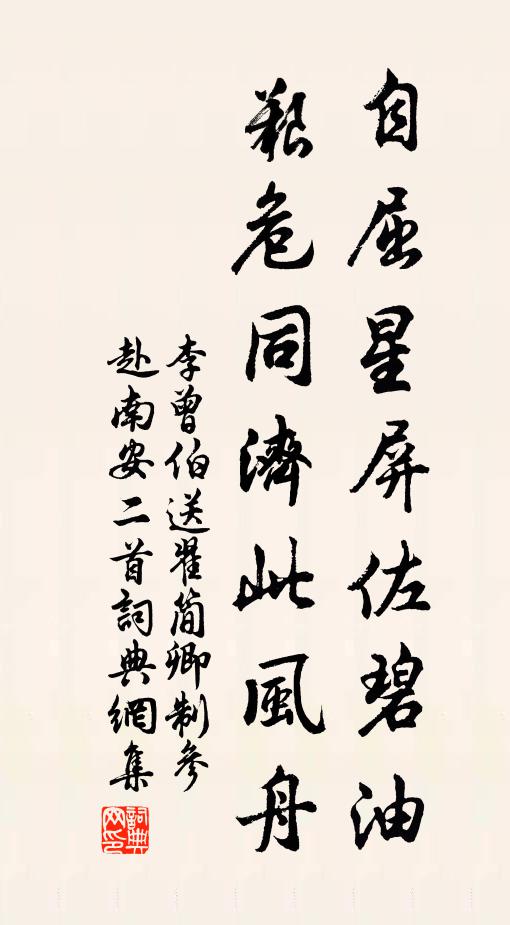 自屈星屏佐碧油
艱危同濟此風舟
李曾伯送翟簡卿制參
赴南安二首詞典網集
詞典
網印